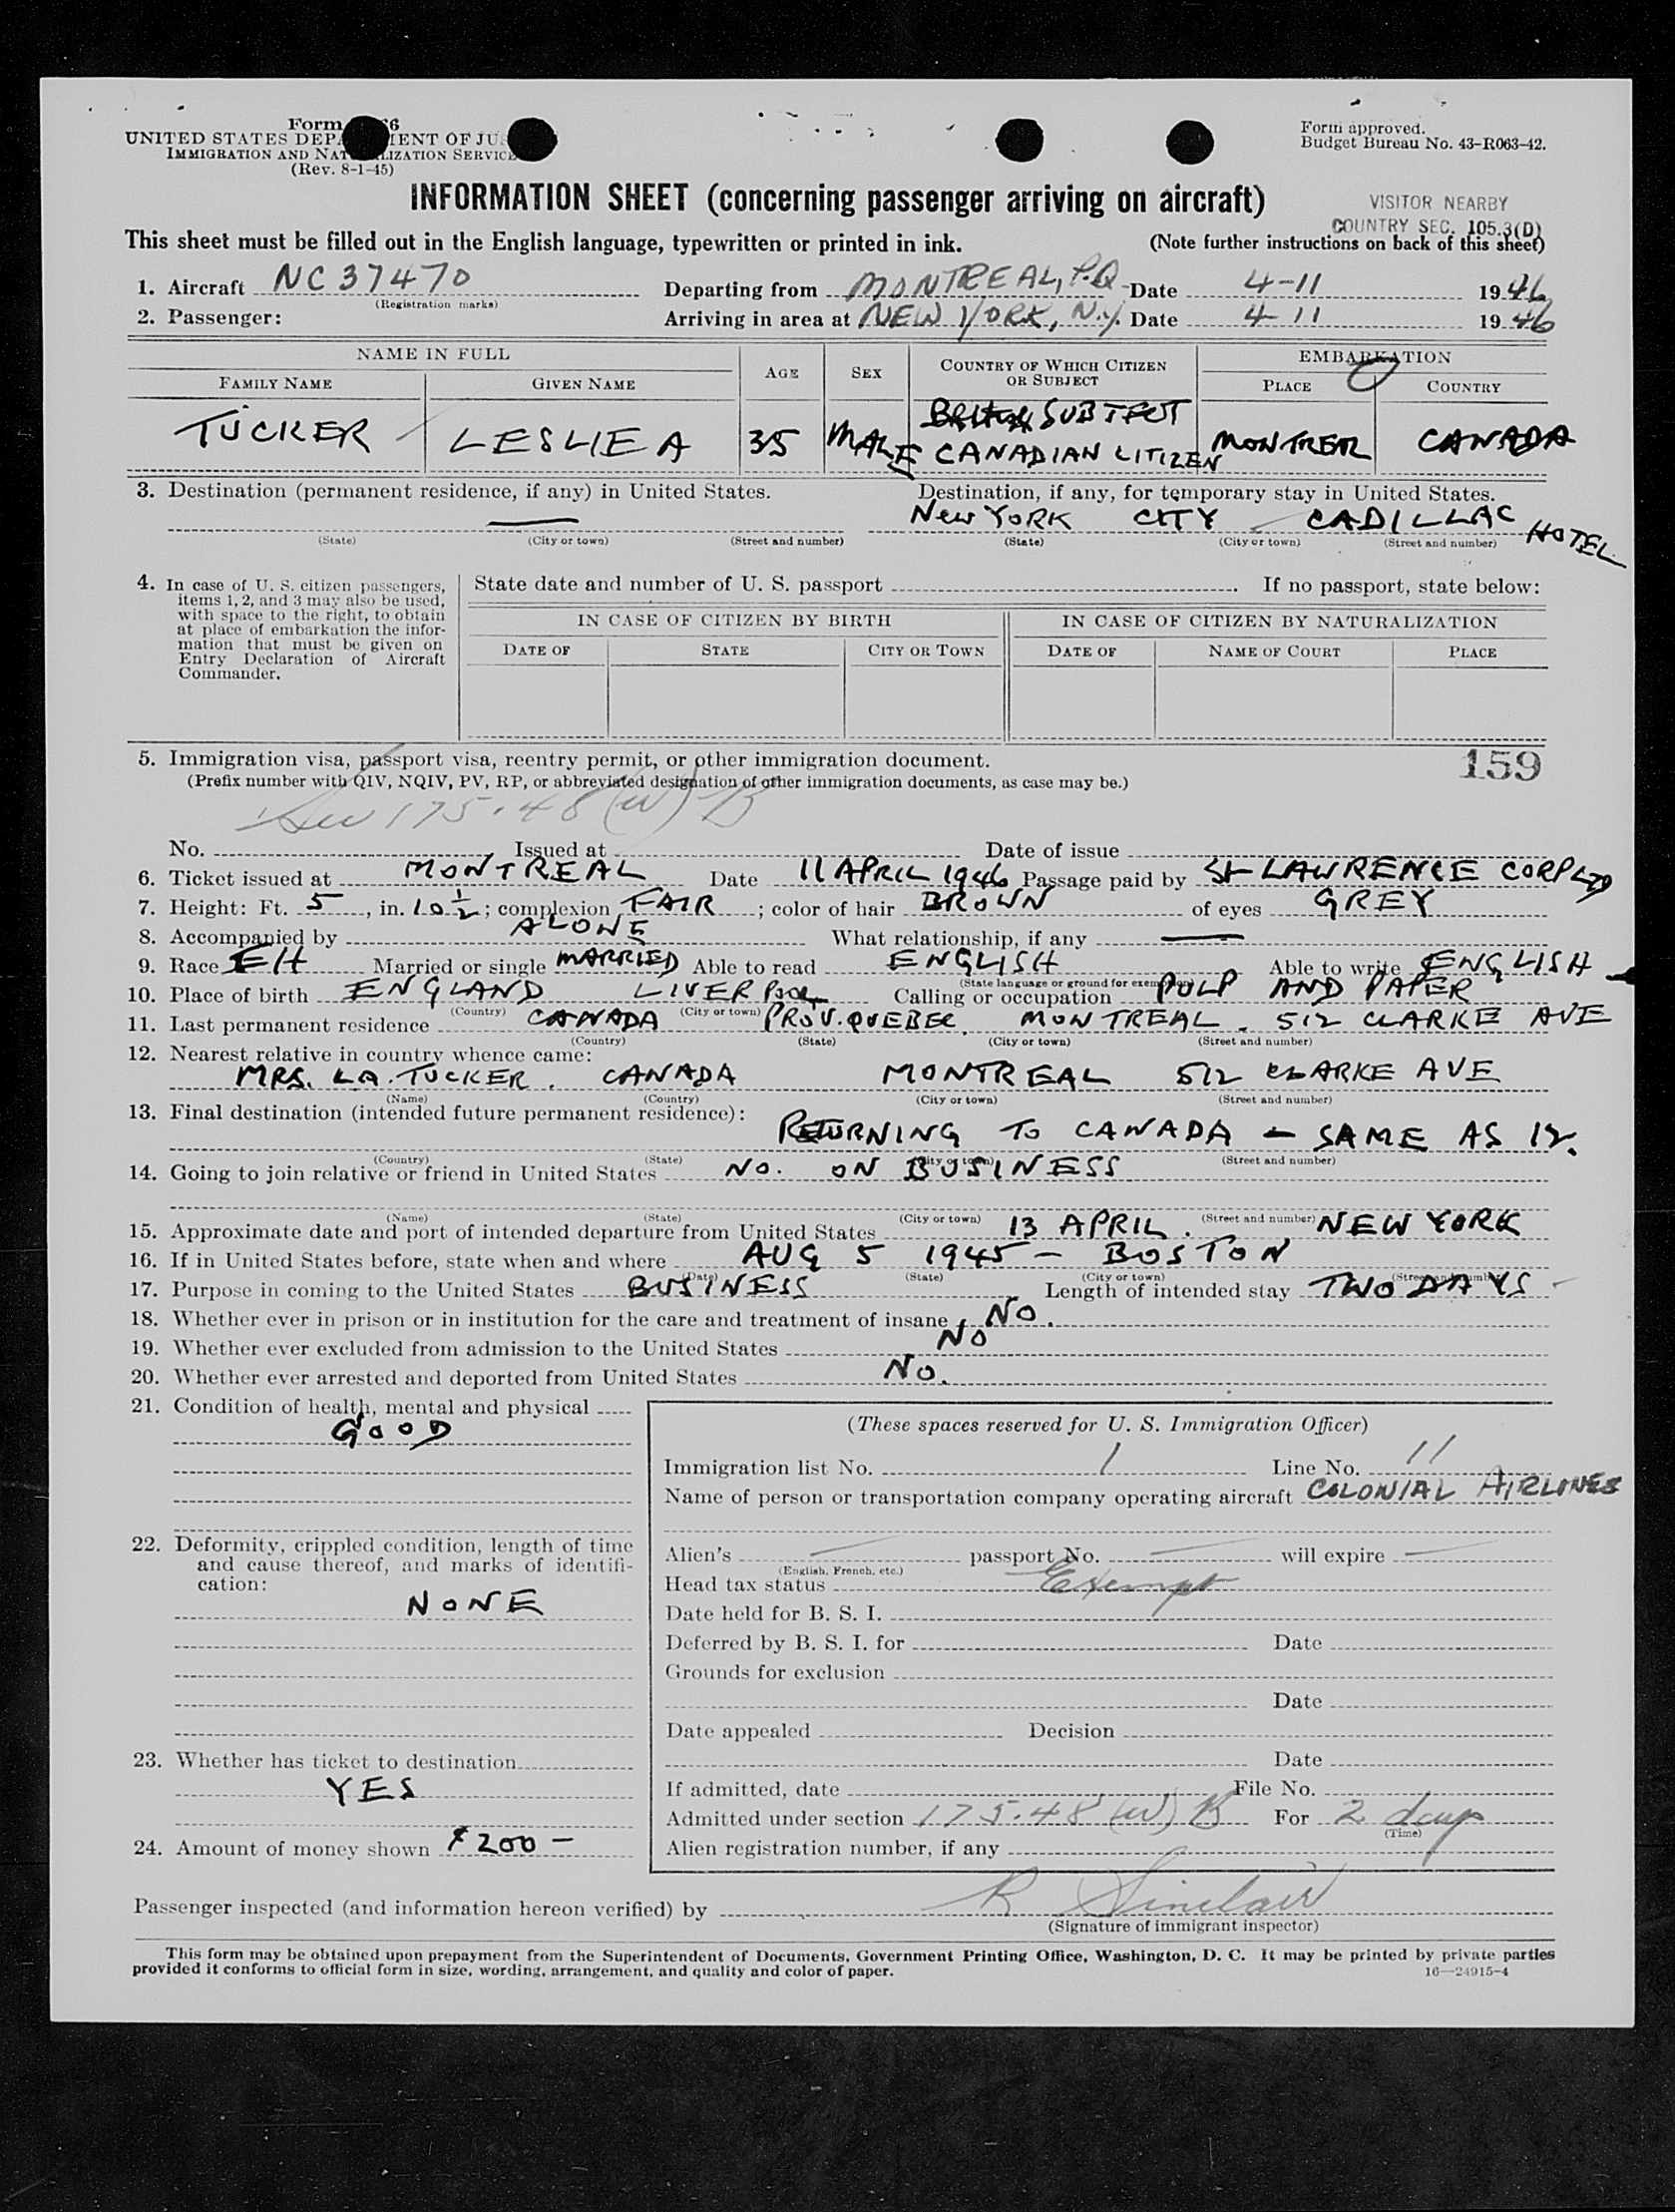 Form 66
UNITED STATES DEPA MENT OF JUS
IMMIGRATION AND NAT LIZATION SERVICE
(Rev. 8-1-45)
Form approved.
Budget Bureau No. 43-R063-42.
INFORMATION SHEET (concerning passenger arriving on aircraft)
VISITOR NEARBY
COUNTRY SEC. 105.3(D)
This sheet must be filled out in the English language, typewritten or printed in ink. (Note further instructions on back of this sheet)
1. Aircraft NC 37470 Departing from MONTREAL, P.Q. Date 4-11 1946
(Registration marks)
2. Passenger: Arriving in area at NEW YORK, N.Y. Date 4 11 1946
NAME IN FULL AGE SEX COUNTRY OF WHICH CITIZEN OR SUBJECT EMBARKATION
FAMILY NAME GIVEN NAME PLACE COUNTRY
TUCKER LESLIE A 35 MALE British SUBJECT CANADIAN CITIZEN MONTREAL CANADA
3. Destination (permanent residence, if any) in United States. Destination, if any, for temporary stay in United States.
— NEW YORK CITY CADILLAC HOTEL
(State) (City or town) (Street and number) (State) (City or town) (Street and number)
4. In case of U. S. citizen passengers, items 1, 2, and 3 may also be used, with space to the right, to obtain at place of embarkation the information that must be given on Entry Declaration of Aircraft Commander.
State date and number of U. S. passport . If no passport, state below:
IN CASE OF CITIZEN BY BIRTH IN CASE OF CITIZEN BY NATURALIZATION
DATE OF STATE CITY OR TOWN DATE OF NAME OF COURT PLACE
5. Immigration visa, passport visa, reentry permit, or other immigration document. 159
(Prefix number with QIV, NQIV, PV, RP, or abbreviated designation of other immigration documents, as case may be.)
Sec 175.48 (w) B
No. Issued at Date of issue
6. Ticket issued at MONTREAL Date 11 APRIL 1946 Passage paid by St LAWRENCE CORP LTD
7. Height: Ft. 5, in. 10 ½; complexion FAIR; color of hair BROWN of eyes GREY
8. Accompanied by ALONE What relationship, if any —
9. Race EH Married or single MARRIED Able to read ENGLISH Able to write ENGLISH
(State language or ground for exemption)
10. Place of birth ENGLAND LIVERPOOL Calling or occupation PULP AND PAPER
(Country) (City or town)
11. Last permanent residence CANADA PROV. QUEBEC. MONTREAL. 512 CLARKE AVE
(Country) (State) (City or town) (Street and number)
12. Nearest relative in country whence came:
MRS. L.A. TUCKER. CANADA MONTREAL 512 CLARKE AVE
(Name) (Country) (City or town) (Street and number)
13. Final destination (intended future permanent residence):
RETURNING TO CANADA - SAME AS 12.
(Country) (State) (City or town) (Street and number)
14. Going to join relative or friend in United States NO. ON BUSINESS
(Name) (State) (City or town) (Street and number)
15. Approximate date and port of intended departure from United States 13 APRIL. NEW YORK
16. If in United States before, state when and where AUG 5 1945 - BOSTON
(Date) (State) (City or town) (Street and number)
17. Purpose in coming to the United States BUSINESS Length of intended stay TWO DAYS
18. Whether ever in prison or in institution for the care and treatment of insane NO.
19. Whether ever excluded from admission to the United States NO
20. Whether ever arrested and deported from United States NO.
21. Condition of health, mental and physical
GOOD
22. Deformity, crippled condition, length of time and cause thereof, and marks of identification:
NONE
23. Whether has ticket to destination
YES
24. Amount of money shown $ 200 -
(These spaces reserved for U. S. Immigration Officer)
Immigration list No. 1 Line No. 11
Name of person or transportation company operating aircraft COLONIAL AIRLINES
Alien's — passport No. — will expire —
(English, French, etc.)
Head tax status Exempt
Date held for B. S. I.
Deferred by B. S. I. for Date
Grounds for exclusion
Date
Date appealed Decision
Date
If admitted, date File No.
Admitted under section 175.48 (w) B For 2 days
(Time)
Alien registration number, if any
Passenger inspected (and information hereon verified) by R Sinclair
(Signature of immigrant inspector)
This form may be obtained upon prepayment from the Superintendent of Documents, Government Printing Office, Washington, D. C. It may be printed by private parties
provided it conforms to official form in size, wording, arrangement, and quality and color of paper.
16—24915-4